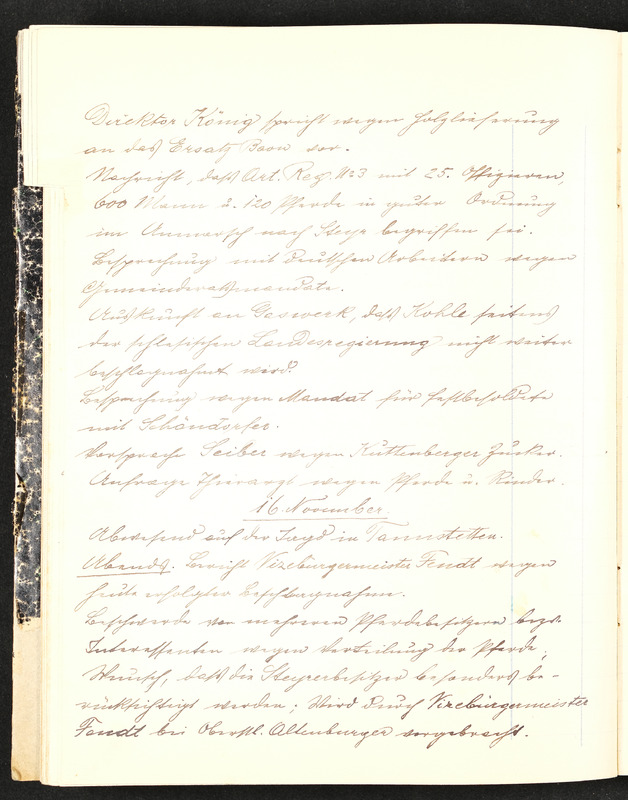 Direktor König spricht wegen Holzlieferung
an das Ersatz Baon vor.
Nachricht, daß Art. Reg. No 3 mit 25. Offizieren,
600 Mann u. 120 Pferde in guter Ordnung
im Anmarsch nach Steyr begriffen sei.
Besprechung mit deutschen Arbeitern wegen
Gemeinderatsmandate.
Auskunft an Gaswerk, daß Kohle seitens
der schlesischen Landesregierung nicht weiter
beschlagnahmt wird.
Besprechung wegen Mandat für Festbesoldete
mit Schöndorfer.
Vorsprache Seiber wegen Kuttenberger Zucker.
Anfrage Thierarzt wegen Pferde u. Rinder.
16. November.
Abwesend auf der Jagd in Tannstetten.
Abends. Bericht Vizebürgermeister Fendt wegen
heute erfolgter Beschlagnahmen.
Beschwerde von mehreren Pferdebesitzern bezw.
Interessenten wegen Verteilung der Pferde;
Wunsch, daß die Steyrerbesitzer besonders be-
rücksichtigt werden; Wird durch Vizebürgermeister
Fendt bei Oberstl. Altenburger vorgebracht.